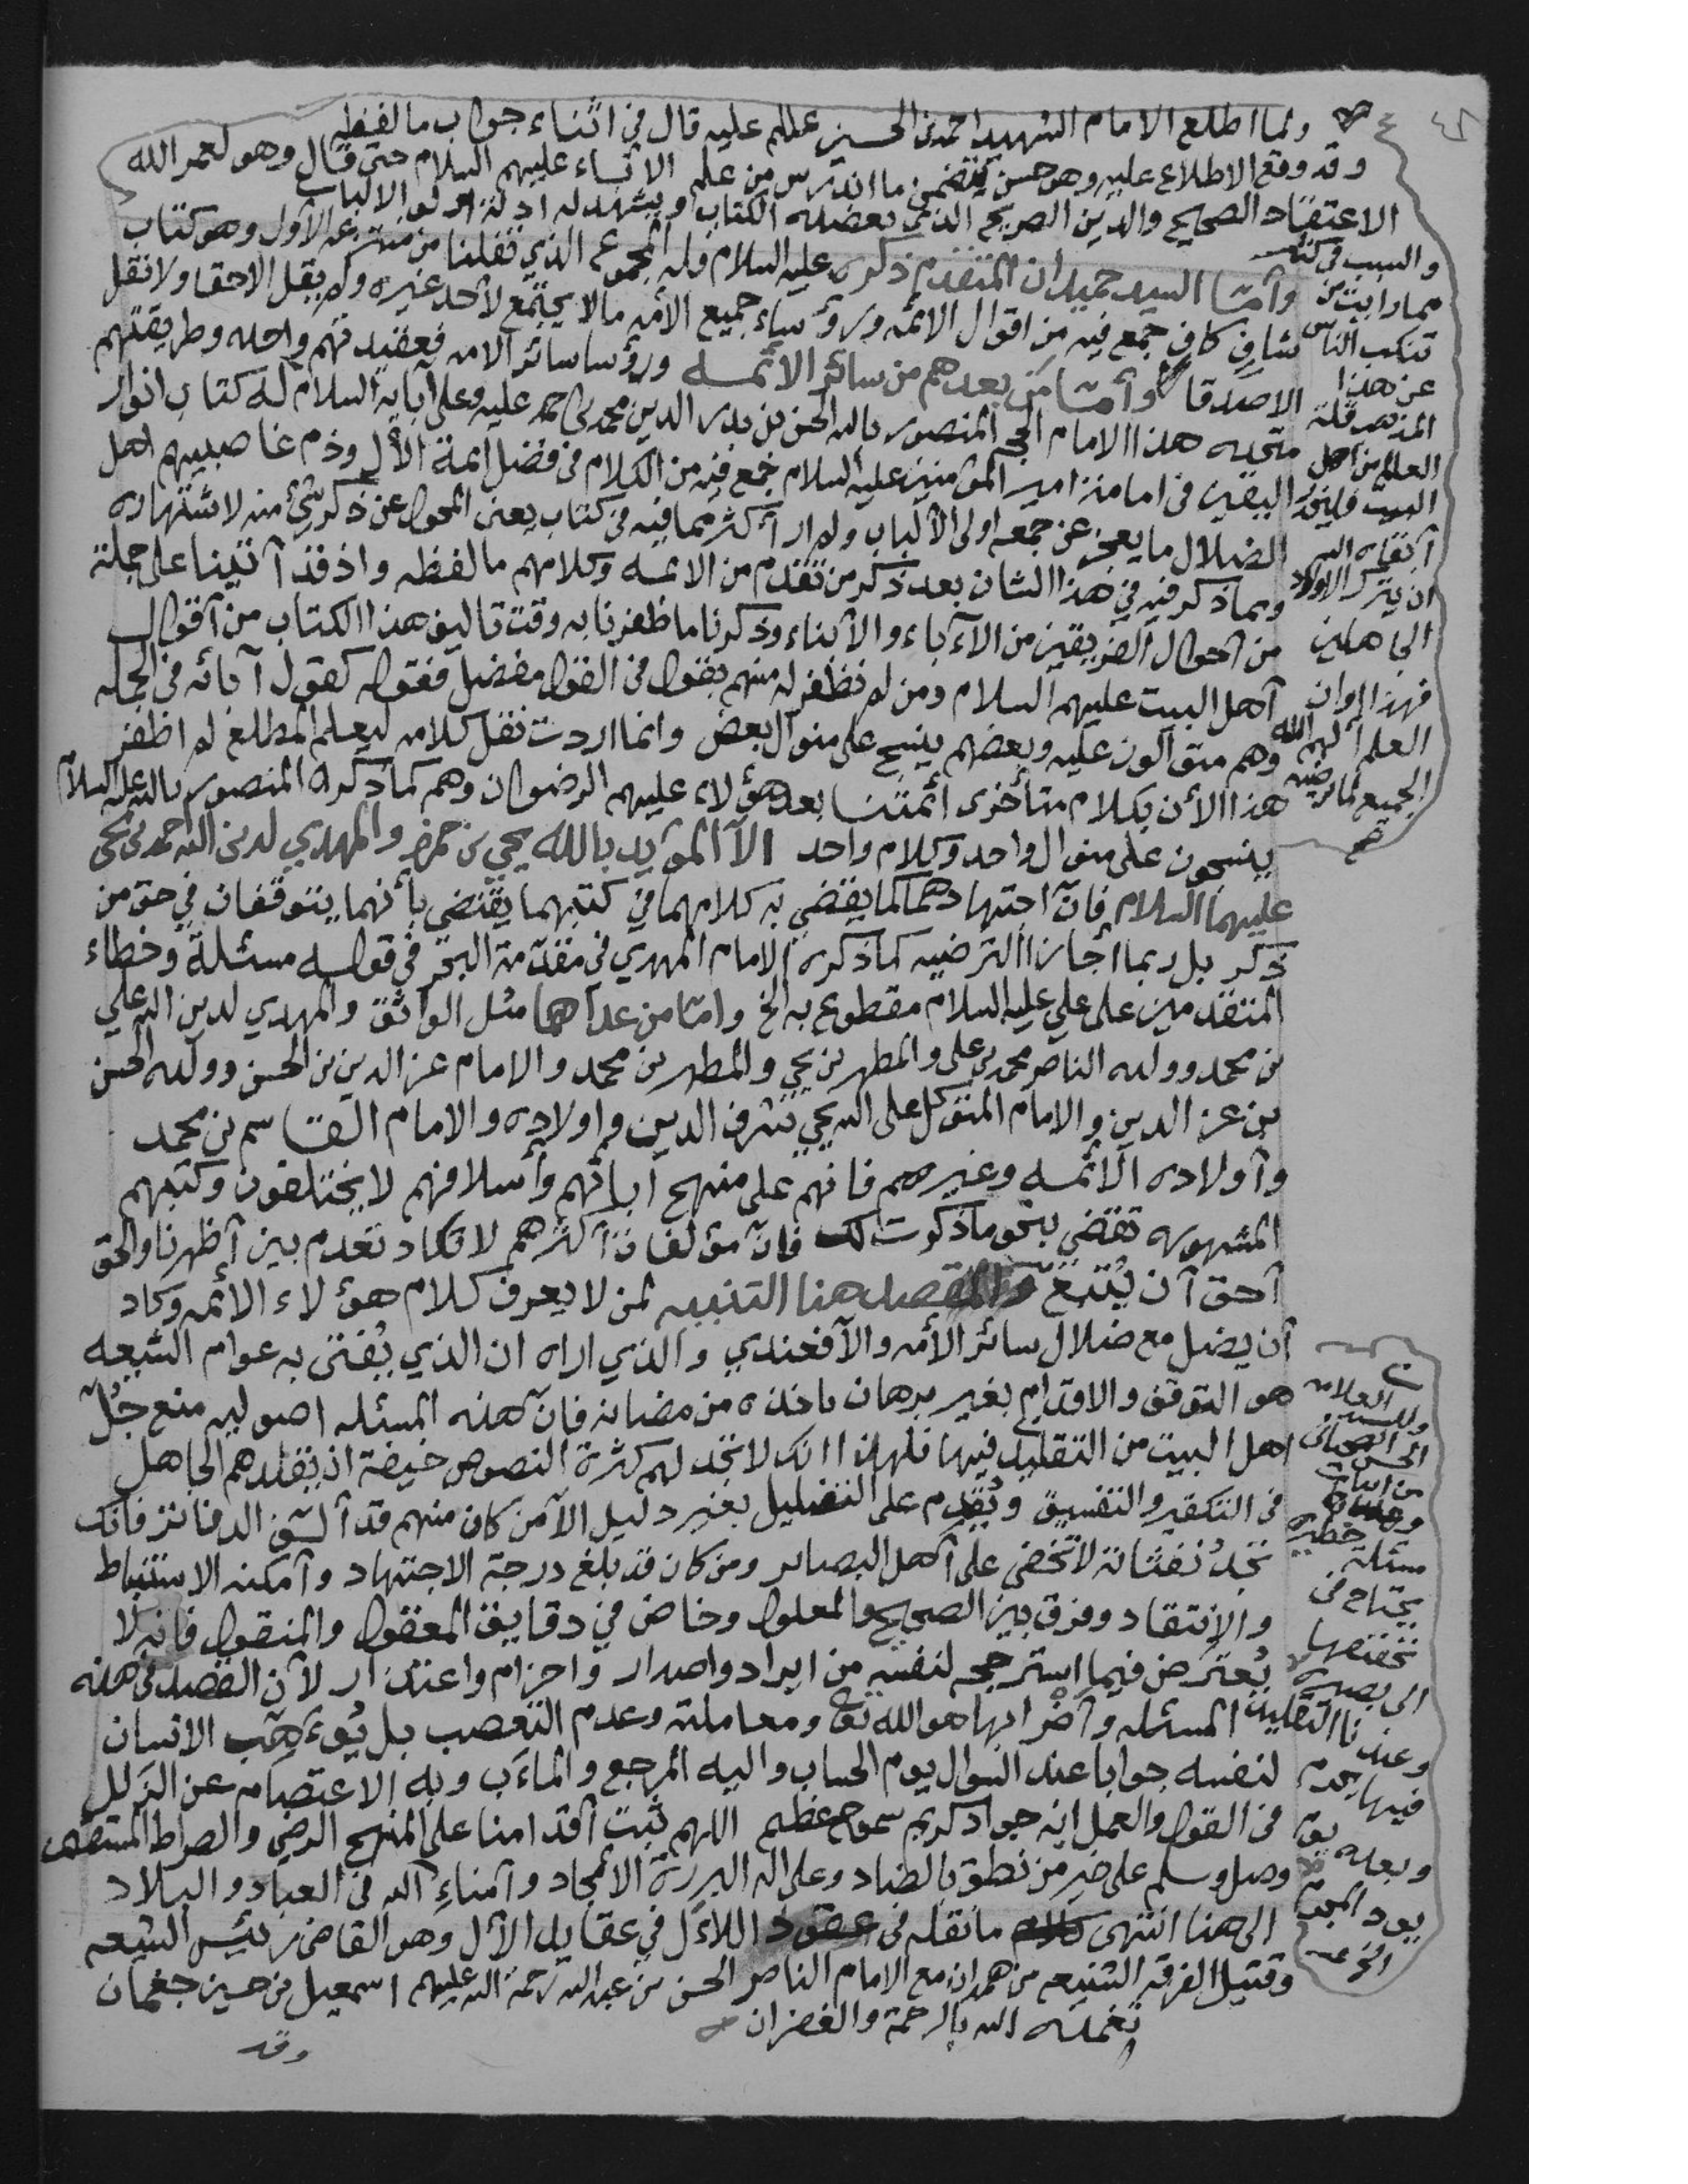 ولما اطلع الامام الشهيد احمد بن الحسين عليه قال في اثناء جواب ما لفظه
وقد وقع الاطلاع عليه وهو حسن يتضمن ما اندرس من علم الانبياء عليهم السلام حتى قال وهو لعمر الله
الاعتقاد الصحيح والدين الصريح الذي بعضده الكتاب ويشهد له ادلة الالباب
وأما السيد حميدان المتقدم ذكره عليه السلام فله المجموع الذي نقلنا من الاول وهو كتاب
شاف كاف جمع فيه من اقوال الائمه ورؤساء جميع الأمه مالا يجتمع لأحد غيره ولم يقل الاحقا ولا نقل
الاصدقا وأما من بعدهم من سائر الأئمه ورؤسا سائر الامه فعقيدتهم واحده وطريقتهم
متحده هذا الامام الحجه المنصور بالله الحسن بن بدر الدين محمد بن احمد عليه وعلى آبايه السلام له كتاب انوار
اليقين في امامة امير المؤمنين عليه السلام جمع فيه من الكلام في فضل ائمة الآل وذم غاصبيهم اهل
الضلال ما يعجز عن جمعه اولى الألباب ولم ار أكثر مما فيه في كتاب يعنى المحول عن ذكر شئ منه لاشتهاره
ومما ذكر فيه في هذا الشان بعد ذكر من تقدم من الائمه وكلامهم ما لفظه واذ قد آتينا على جملة
من احوال الفريقين من الآباء والابناء وذكرنا ما ظفرنا به وقت تاليف هذا الكتاب من آقوال
آهل البيت عليهم السلام ومن لم نظفر له منهم بقول في القول مفصل فقوله كقول آبائه في الجمله
وهم متوالون عليه وبعضهم ينسج على منوال بعض وانما اردت نقل كلامه ليعلم المطلع لم اظفر
هذا الأن بكلام متأخرى أئمتنا بعد هؤلاء عليهم الرضوان وهم كما ذكره المنصور بالله عليه السلام
ينسجون على منوال واحد وكلام واحد الا المؤيد بالله يحي بن حمزه والمهدي لدين الله احمد بن يحي
عليهما السلام فان اجتهادهما كما يقضي به كلامهما في كتبهما يقتضي بأنهما يتوقفان في حق من
ذكر بل ربما اجازا الترضيه كما ذكره الامام المهدي في مقدمة البحر في قوله مسئلة وخطاء
المتقدمين على علي عليه السلام مقطوع به الخ واما من عداهما مثل الواثق والمهدي لدين الله علي
بن محمد وولده الناصر محمد بن علي والمطهر بن يحي والمطهر بن محمد والامام عز الدين بن الحسن وولده الحسن
بن عز الدين والامام المتوكل على الله يحي شرف الدين واولاده والامام القاسم بن محمد
وآولاده الائمه وغيرهم فانهم على منهج آبائهم وأسلافهم لا يختلفون وكتبهم
المشهوره تقضي بنحو ما ذكرت لك فان مؤلفات آكثرهم لا تكاد تعدم بين آظهرنا والحق
آحق آن يتبع والمقصد هنا التنبيه لمن لا يعرف كلام هؤلاء الائمه وكاد
آن يضل مع ضلال سائر الأمه والآفعندي والذي اراه ان الذي يُفتى به عوام الشيعه
هو التوقف والاقدام بغير برهان ياخذه من مضانه فان هذه المسئله اصوليه منع جُل
اهل البيت من التقليد فيها فلهذا انك لا تجد لهم كثرة النصوص خيفة ان يقلدهم الجاهل
في التكفير والتفسيق ويُقدم على التضليل بغير دليل الا من كان منهم قد آلف الدفاتر فانك
تجد نفثاته لا تخفى على آهل البصاير ومن كان قد بلغ درجة الاجتهاد وآمكنه الاستنباط
والانتقاد وفرق بين الصحيح والمعلول وخاض في دقايق المعقول والمنقول فانه لا
يُعترض فيما استرجحه لنفسه من ايراد واصدار واحزام واعتذار لآن القصد في هذه
المسئله وآضرابها هو الله تعالى ومعاملته وعدم التعصب بل يُهب الانسان
لنفسه جوابا عند السؤال يوم الحساب واليه المرجع والمآب وبه الاعتصام عن الزلل
في القول والعمل انه جواد كريم عظيم اللهم ثبت آقدامنا على المنهج الرضي والصراط المستقيم
وصل وسلم على خير من نطق بالضاد وعلى اله البررة الأمجاد وآمناء الله في العباد والبلاد
الى هنا انتهى ما نقله في عقود اللاءل في عقايد الآل وهو القاضي رئيس الشيعه
وقتيل الفرقه الشنيعه من همدان مع الامام الناصر الحسن بن عبدالله رحمة الله عليهم اسمعيل بن حسين جغمان
تغمده الله بالرحمة والغفران
وقد
والسبب في
مما رايت من
تنكب الناس
عن هذا
المذهب قلة
العلم من اهل
البيت
ان يترك الاولاد
الجاهلين
فهذا اوان
العلم الهم الله
الجميع لما يرضيه
العلامه
مسئلة خطيره
يحتاج في
تحققها
الى بصيره
وعندنا التقليد
فيها يحرم